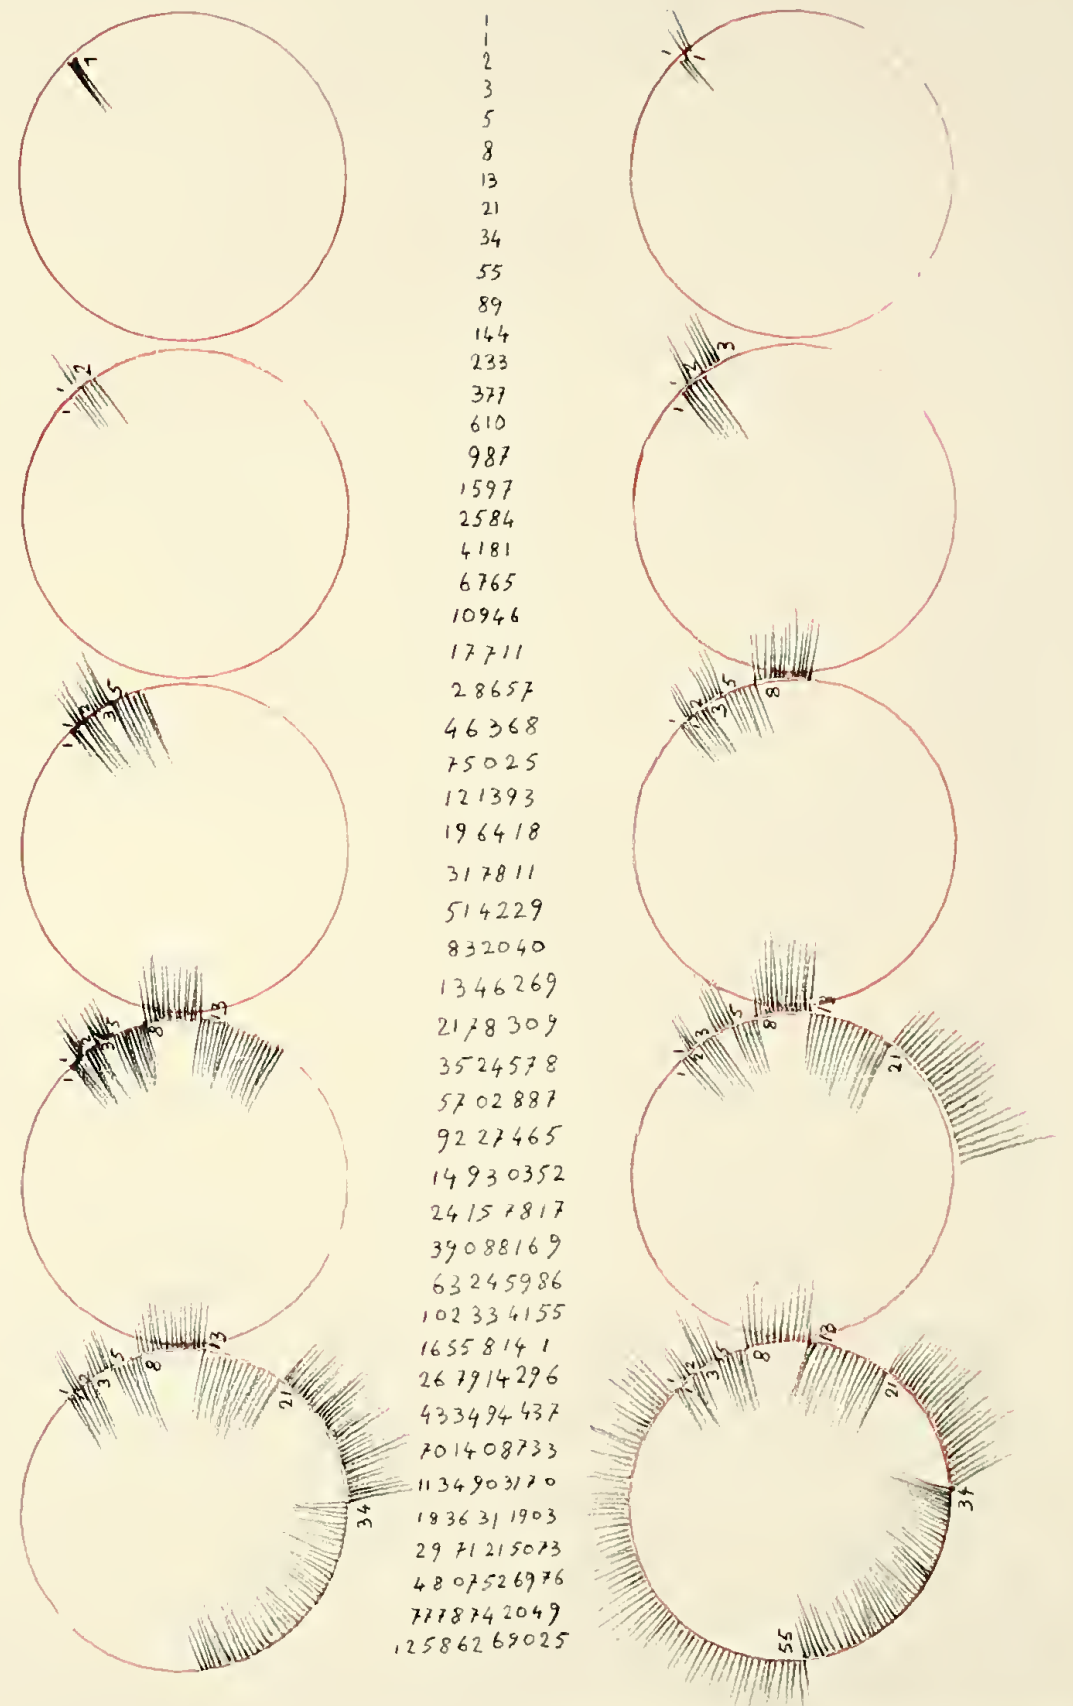 1
1 1 2
1 1 2 3 5
1 1 2 3 5 8 13
1 1 2 3 5 8 13 21 34
1
1
2
3
5
8
13
21
34
55
89
144
233
377
610
987
1597
2584
4181
6765
10946
17711
28657
46368
75025
121393
196418
317811
514229
832040
1346269
2178309
3524578
5702887
9227465
14930352
24157817
39088169
63245986
102334155
16558141
267914296
433494437
701408733
1134903170
1836311903
2971215073
4807526976
7778742049
12586269025
1 1
1 1 2 3
1 1 2 3 5 8
1 1 2 3 5 8 13 21
1 1 2 3 5 8 13 21 34 55